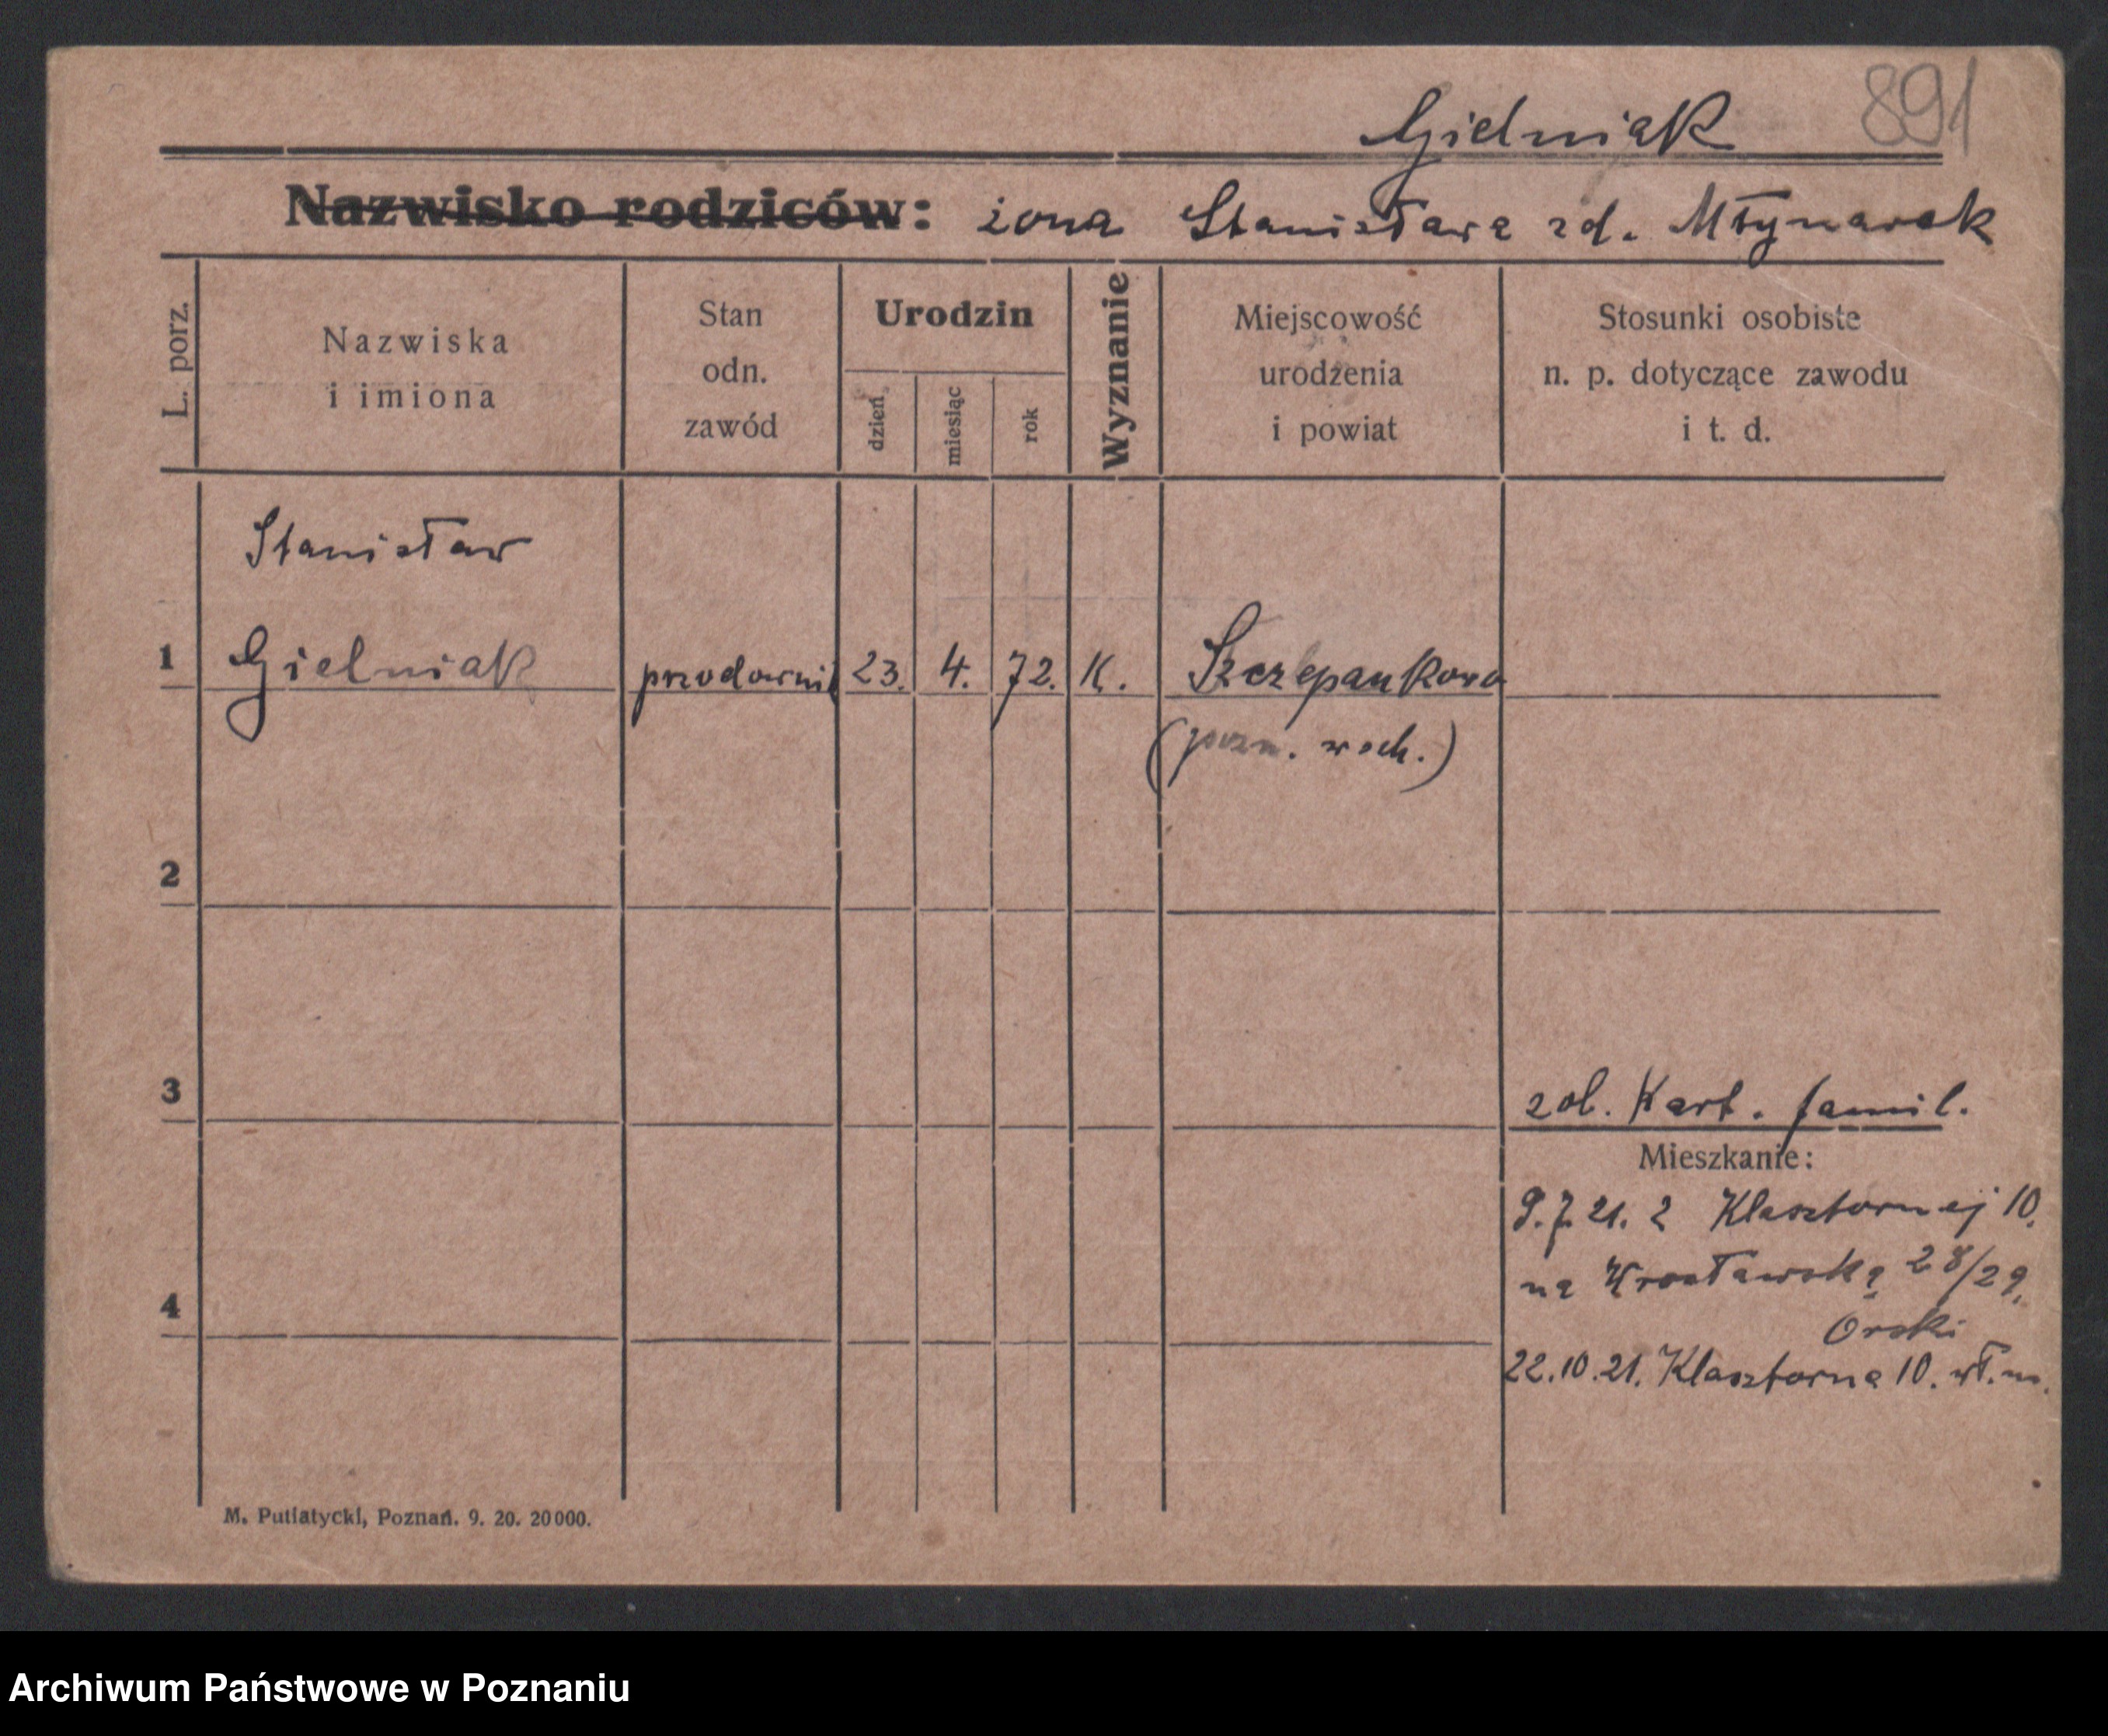 891
Gielniak
Nazwisko rodziców: żona Stanisława zd. Młynarek
L. porz.
Nazwiska i imiona
Stan odn. zawód
Urodzin
dzień
miesiąc
rok
Wyznanie
Miejscowość urodzenia i powiat
Stosunki osobiste n. p. dotyczące zawodu i t. d.
Stanisław
1 Gielniak przodownik 23. 4. 72. K. Szczepankowo
(pozn. wsch.)
2
3
zob. Kart. famil.
Mieszkanie:
9.7.21. z Klasztornej 10.
na Wrocławską 28/29.
4
Orski
22.10.21. Klasztorna 10. wł. m.
M. Putiatycki, Poznań. 9. 20. 20000.
Archiwum Państwowe w Poznaniu